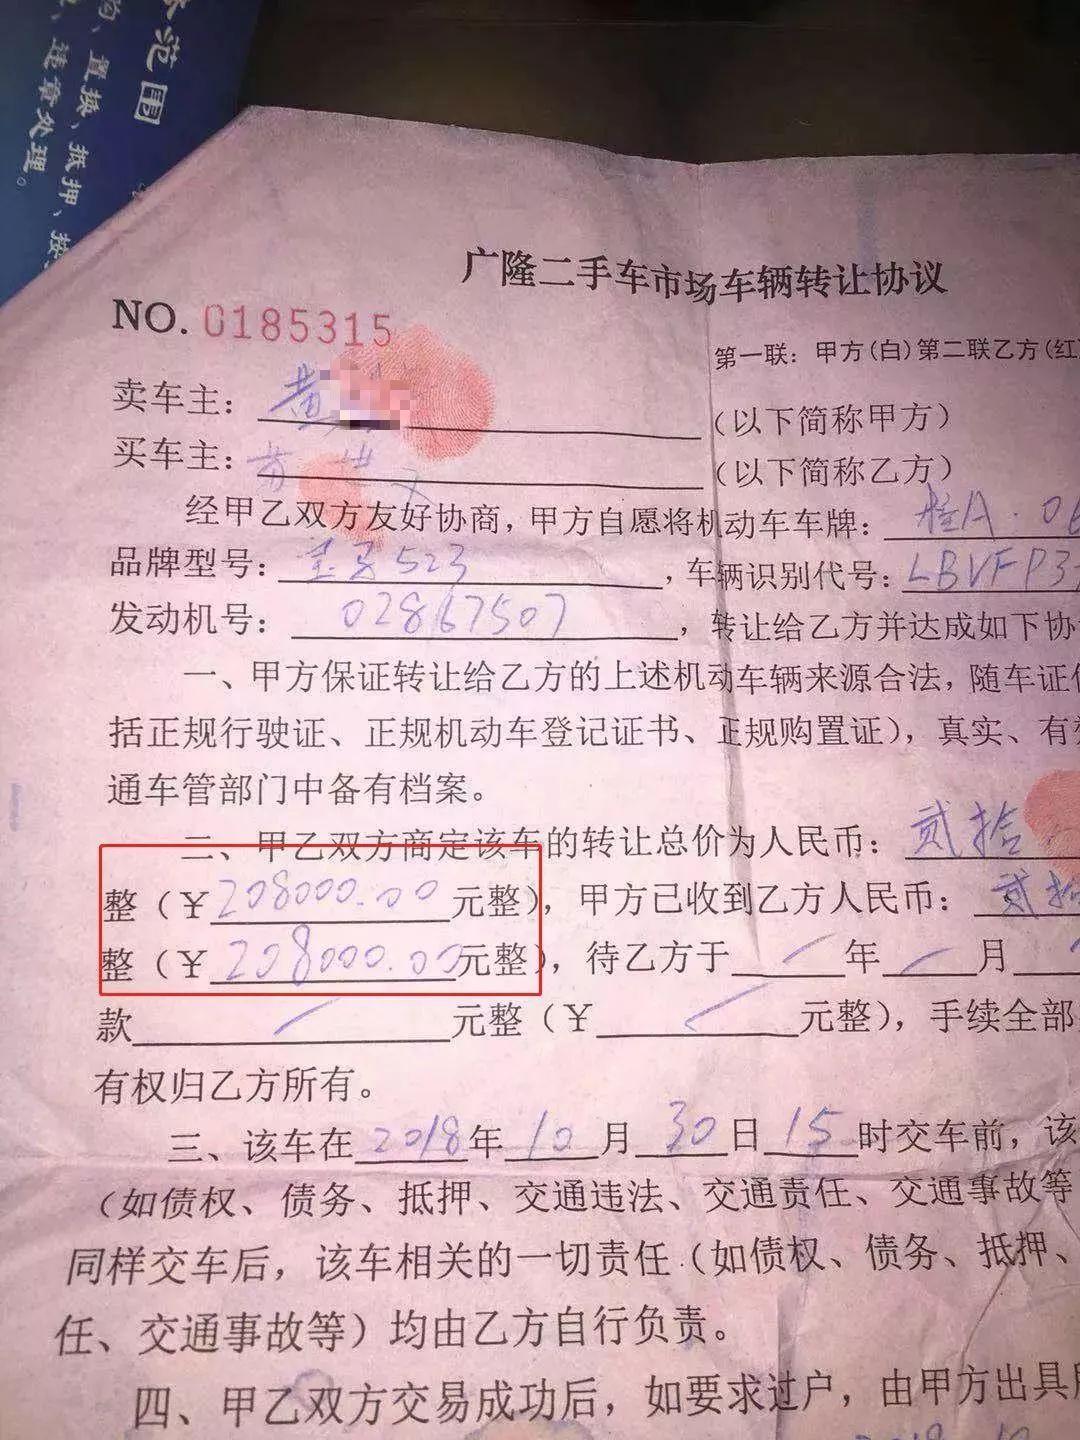 范围
构、置换、抵押、按
违章处理。
广隆二手车市场车辆转让协议
NO. 0185315
第一联：甲方(白)第二联乙方(红)
卖车主：黄
（以下简称甲方）
买车主：
（以下简称乙方）
经甲乙双方友好协商，甲方自愿将机动车车牌：桂A·06
品牌型号：宝马523，车辆识别代号：LBVFP3
发动机号：02867507，转让给乙方并达成如下协
一、甲方保证转让给乙方的上述机动车辆来源合法，随车证
括正规行驶证、正规机动车登记证书、正规购置证），真实、有
通车管部门中备有档案。
二、甲乙双方商定该车的转让总价为人民币：贰拾
整（￥208000.00元整），甲方已收到乙方人民币：贰拾
整（￥208000.00元整），待乙方于/年/月
款/元整（￥/元整），手续全部
有权归乙方所有。
三、该车在2018年10月30日15时交车前，该
（如债权、债务、抵押、交通违法、交通责任、交通事故等
同样交车后，该车相关的一切责任（如债权、债务、抵押、
任、交通事故等）均由乙方自行负责。
四、甲乙双方交易成功后，如要求过户，由甲方出具